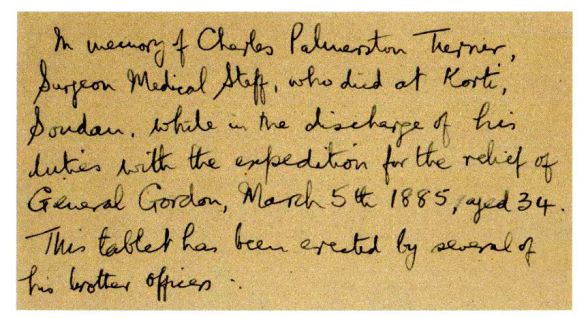 In memory of Charles Palmerston Turner,
Surgeon Medical Staff, who died at Korti,
Soudan, while in the discharge of his
duties with the expedition for the relief of
General Gordon, March 5th 1885, aged 34.
This tablet has been erected by several of
his brother officers.